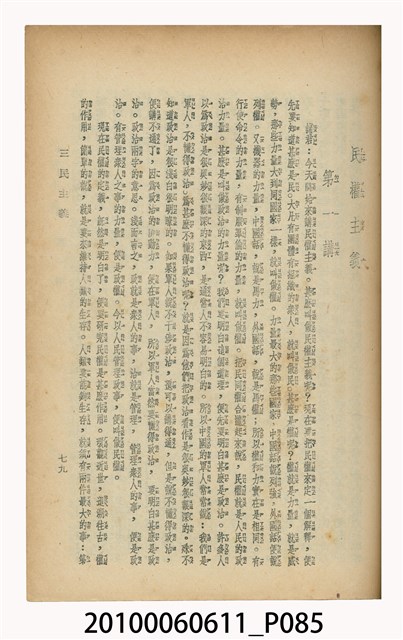 民權主義
第一講
諸君:今天開始來講民權主義。甚麼叫做民權主義呢?現在要把民權來定一個解釋,便
先要知道甚麼是民。大凡有團體有組織的衆人,就叫做民。甚麼是權呢?權就是力量,就是威
勢,那些力量大到同國家一樣,就叫做權。力量最大的那些國家,中國話說列強,外國話便說
列權。又機器的力量,中國話說是馬力,外國話說是馬權;所以權和力實在是相同。有
行使命令的力量,有制服羣倫的力量,就叫做權。把民同權合攏起來說,民權就是人民的政
治力量。甚麼是叫做政治的力量呢?我們要明白這個道理,便先要明白甚麼是政治。許多人
以爲政治是很奧妙很艱深的東西,是通常人不容易明白的。所以中國的軍人常常說:我們是
軍人,不懂得政治。爲甚麼不懂得政治呢?就是因爲他們把政治看作是很奧妙很艱深的。殊不
知道政治是很淺白很明瞭的。如果軍人說不干涉政治,還可以講得通,但是說不懂得政治,
便講不通了,因爲政治的原動力,便在軍人,所以軍人當然要懂得政治,要明白甚麼是政
治。政治兩字的意思,淺而言之,政就是衆人的事,治就是管理,管理衆人的事,便是政
治。有管理衆人之事的力量,便是政權。今以人民管理政事,便叫做民權。
現在民權的定義,旣然是明白了,便要研究民權是甚麼作用。環觀近世,追溯往古,權
的作用,簡單的說,就是要來維持人類的生存。人類要能夠生存,就須有兩件最大的事:第
三民主義
七九
20100060611_P085